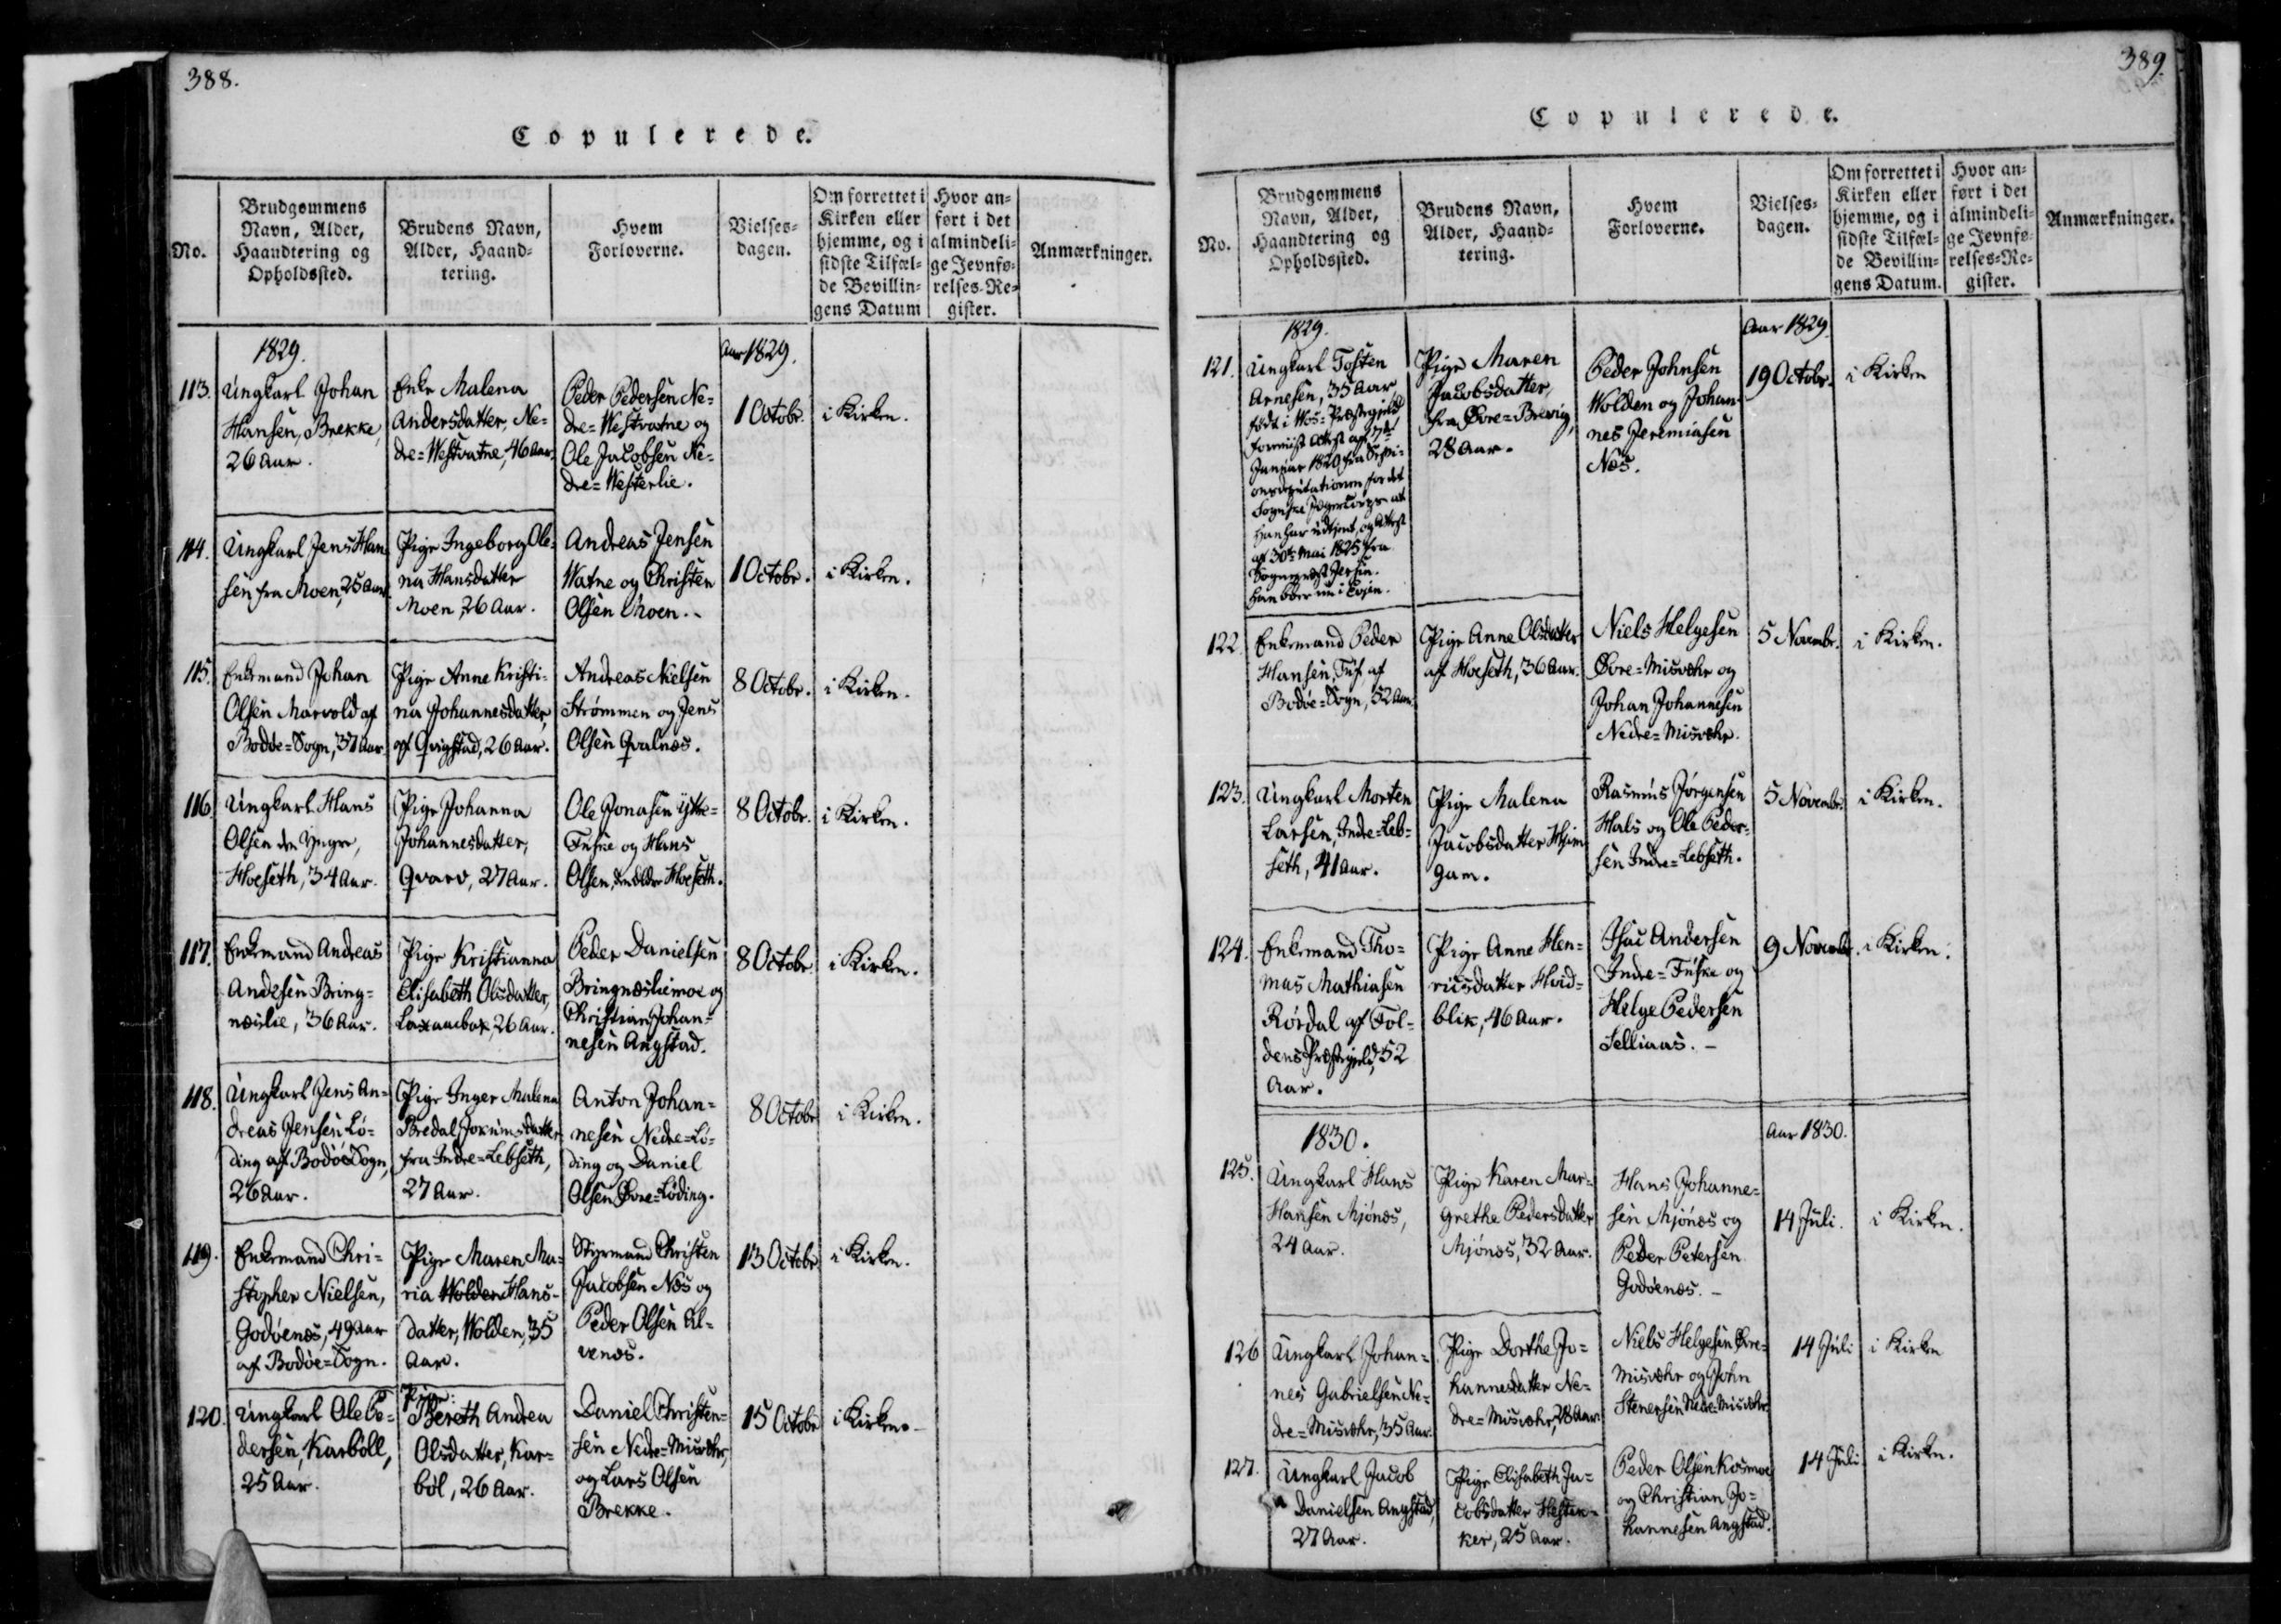 388.
Copulerede.
No.
Brudgommens
Navn, Alder,
Haandtering og
Opholdssted.
Brudens Navn,
Alder, Haand-
tering.
Hvem
Forloverne.
Vielses-
dagen.
Om forrettet i
Kirken eller
hjemme, og i
sidste Tilfæl-
de Bevillin-
gens Datum
Hvor an-
ført i det
almindeli-
ge Jevnfø-
relses-Re-
gister.
Anmærkninger.
1829.
Aar 1829.
113.
Ungkarl Johan
Hansen, Brekke,
26 Aar.
Enke Malena
Andersdatter, Ne-
dre=Westvatne, 46 Aar.
Peder Pedersen Ne-
dre=Westvatne og
Ole Jacobsen Ne-
dre=Westerlie.
1 Octobr.
i Kirken.
114.
Ungkarl Jens Han-
sen fra Moen, 25 Aar
Pige Ingeborg Ole-
na Hansdatter
Moen, 26 Aar.
Andreas Jensen
Watne og Christen
Olsen Moen.
1 Octobr.
i Kirken.
115.
Enkemand Johan
Olsen Marvold af
Bodøe=Sogn, 37 Aar.
Pige Anne Kristi-
na Johannesdatter,
af Qvigstad, 26 Aar.
Andreas Nielsen
Strømmen og Jens
Olsen Qvalnæs.
8 Octobr.
i Kirken.
116.
Ungkarl Hans
Olsen den Yngre,
Hoeseth, 34 Aar.
Pige Johanna
Johannesdatter,
Qvarv, 27 Aar.
Ole Jonasen Ytre-
Fuske og Hans
Olsen, den ældre Hoeseth.
8 Octobr.
i Kirken.
117.
Enkemand Andreas
Andersen Bring-
næslie, 36 Aar.
Pige Kristianna
Elisabeth Olsdatter,
26 Aar.
Peder Danielsen
Bringnæsliemoe og
Christian Johan-
nesen Angstad.
8 Octobr.
i Kirken.
118.
Ungkarl Jens An-
dreas Jensen Lø-
ding af Bodøe Sogn,
26 Aar.
Pige Inger Malena
Bredal Jokumsdatter
fra Indre=Lebseth,
27 Aar.
Anton Johan-
nesen Nedre=Lø-
ding og Daniel
Olsen Øvre=Løding.
8 Octobr
i Kirken.
119.
Enkemand Chri-
stopher Nielsen,
Godøenæs, 49 Aar
af Bodøe=Sogn.
Pige Maren Ma-
ria Wolden Hans-
datter, Wolden, 35
Aar.
Styrmand Christen
Jacobsen Næs og
Peder Olsen Al-
venæs.
13 Octobr
i Kirken.
120.
Ungkarl Ole Pe-
dersen, Karbøll,
25 Aar.
Pige:
Bereth Andrea
Olsdatter, Kar-
bøl, 26 Aar.
Daniel Christen-
sen Nedre=Misvær,
og Lars Olsen
Brekke.
15 Octobr
i Kirken.
389.
Copulerede.
No.
Brudgommens
Navn, Alder,
Haandtering og
Opholdssted.
Brudens Navn,
Alder, Haand-
tering.
Hvem
Forloverne.
Vielses-
dagen.
Om forrettet i
Kirken eller
hjemme, og i
sidste Tilfæl-
de Bevillin-
gens Datum.
Hvor an-
ført i det
almindeli-
ge Jevnfø-
relses-Re-
gister.
Anmærkninger.
1829.
Aar 1829.
121.
Ungkarl Tosten
Arnesen, 35 Aar
født i Wos=Præstegjeld
Januar 1820 fra
han har udtjent, og Attest
af 30te Mai 1825 fra
han boer nu i
Pige Maren
Jacobsdatter,
fra Øvre=Brevig,
28 Aar.
Peder Johnsen
Wolden og Johan-
nes Jeremiasen
Næs.
19 Octobr.
i Kirken
122.
Enkemand Peder
Hansen, af
Bodøe=Sogn, 52 Aar
Pige Anne Olsdatter
af Hoeseth, 36 Aar.
Niels Helgesen
Øvre=Misvær og
Johan Johannesen
Nedre=Misvær.
5 Novembr.
i Kirken.
123.
Ungkarl Morten
Larsen, Indre=Leb-
seth, 41 Aar.
Pige Malena
Jacobsdatter Hjem-
gam.
Rasmus Jørgensen
Hals og Ole Peder-
sen Indre=Lebseth.
5 Novembr.
i Kirken.
124.
Enkemand Tho-
mas Mathiasen
Rørdal af Fol-
dens Præstegjeld, 52
Aar.
Pige Anne Hen-
ricsdatter Hvid-
blik, 46 Aar.
Isac Andersen
Indre=Fuske og
Helge Pedersen
Selliaas.
9 Novembr.
i Kirken.
1830.
Aar 1830.
125.
Ungkarl Hans
Hansen Mjönæs,
24 Aar.
Pige Karen Mar-
grethe Pedersdatter
Mjönæs, 32 Aar.
Hans Johanne-
sen Mjönæs og
Peder Petersen
Godøenæs.
14 Juli.
i Kirken.
126
Ungkarl Johan-
nes Gabrielsen Ne-
dre=Misvær, 35 Aar.
Pige Dorthe Jo-
hannesdatter Ne-
dre=Misvær, 28 Aar.
Niels Helgesen Øvre-
Misvær og John
Stenersen Nedre=Misvær.
14 Juli
i Kirken
127.
Ungkarl Jacob
Danielsen Angstad,
27 Aar.
Pige Elisabeth Ja-
cobsdatter Hestek-
ker, 25 Aar.
Peder Olsen Kosmoe
og Christian Jo-
hannesen Angstad.
14 Juli
i Kirken.